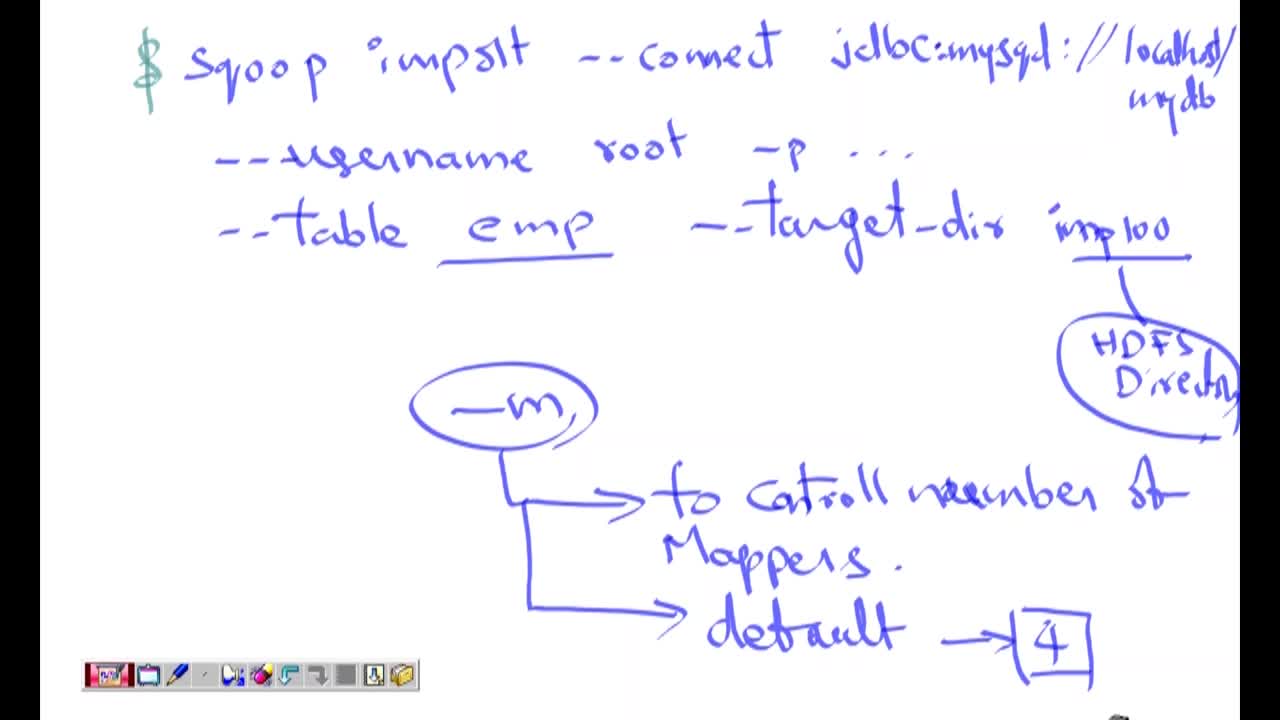 $ sqoop import --connect jdbc:mysql://localhost/
mydb
--username root -p ...
--table emp --target-dir imp100
HDFS
Directory
-m,
to catroll number of
Mappers.
default → 4